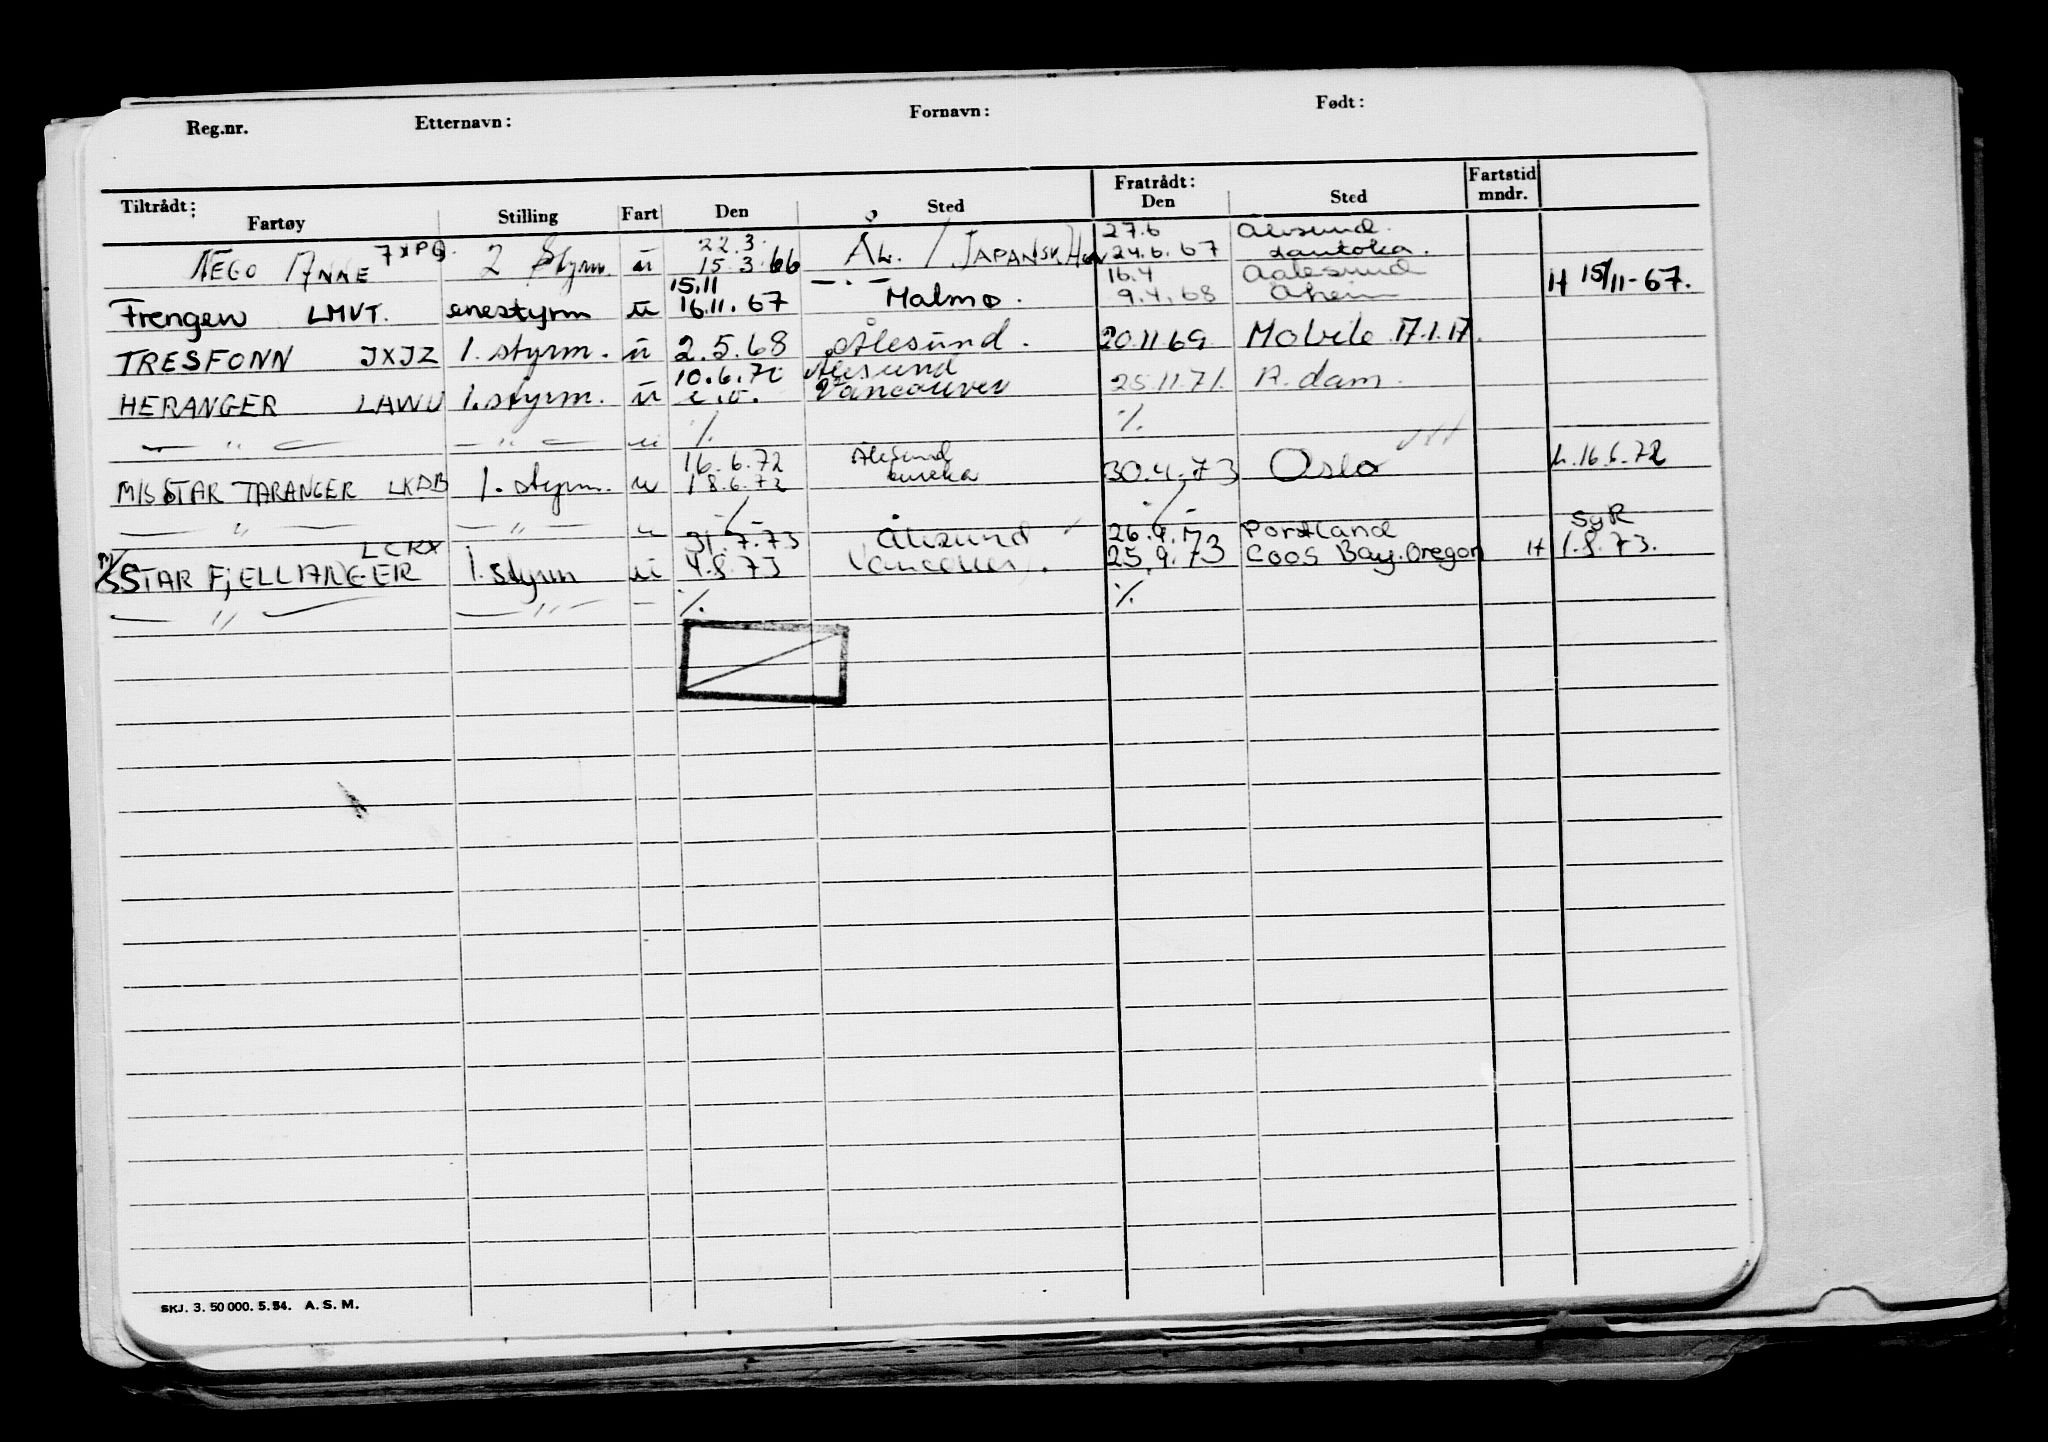 Reg.nr. Etternavn: Fornavn: Født:
Tiltrådt: Fratrådt: Fartstid
Fartøy Stilling Fart Den Sted Den Sted mndr.
22.3. 27.6 Ålesund.
NEGO ANNE 7XPQ. 2 styrm. u 15.3.66 ÅL. / JAPANSK HAV 24.6.67 Lautoka.
15.11 — . — 16.4 Aalesund
Frengen LMVT. enestyrm u 16.11.67 Malmø. 9.4.68 Åheim H 15/11-67.
TRESFONN JXJZ 1. styrm. u 2.5.68 Ålesund. 20.11.69 Mobile 17.1.17.
10.6.70 Ålesund
HERANGER LAWU 1. styrm. u Vancouver 25.11.71. R.dam.
— " — — " — u ./. ./.
16.6.72 Ålesund
M/S STAR TARANGER LKDB 1. styrm. u 18.6.72 Eureka 30.4.73 Oslo 16.6.72
— " — — " — " ./. ./.
LCKX 31.7.73 Ålesund 26.9.73 Portland SyR
M/S STAR FJELLANGER 1. styrm u 4.8.73 Vancouver. 25.9.73 Coos Bay. Oregon H 1.8.73.
— " — — " — — ./. ./.
SKJ. 3. 50 000. 5. 54. A. S. M.